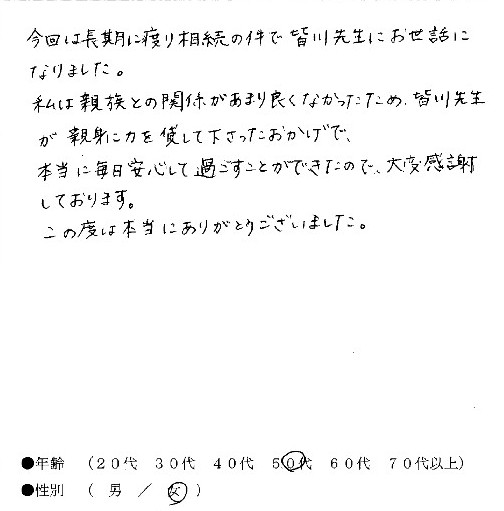 今回は長期に渡り相続の件で皆川先生にお世話に
なりました。
私は親族との関係があまり良くなかったため、皆川先生
が親身に力を貸して下さったおかげで、
本当に毎日安心して過ごすことができたので、大変感謝
しております。
この度は本当にありがとうございました。
●年齢 （20代 30代 40代 50代 60代 70代以上）
●性別 （ 男 ／ 女 ）